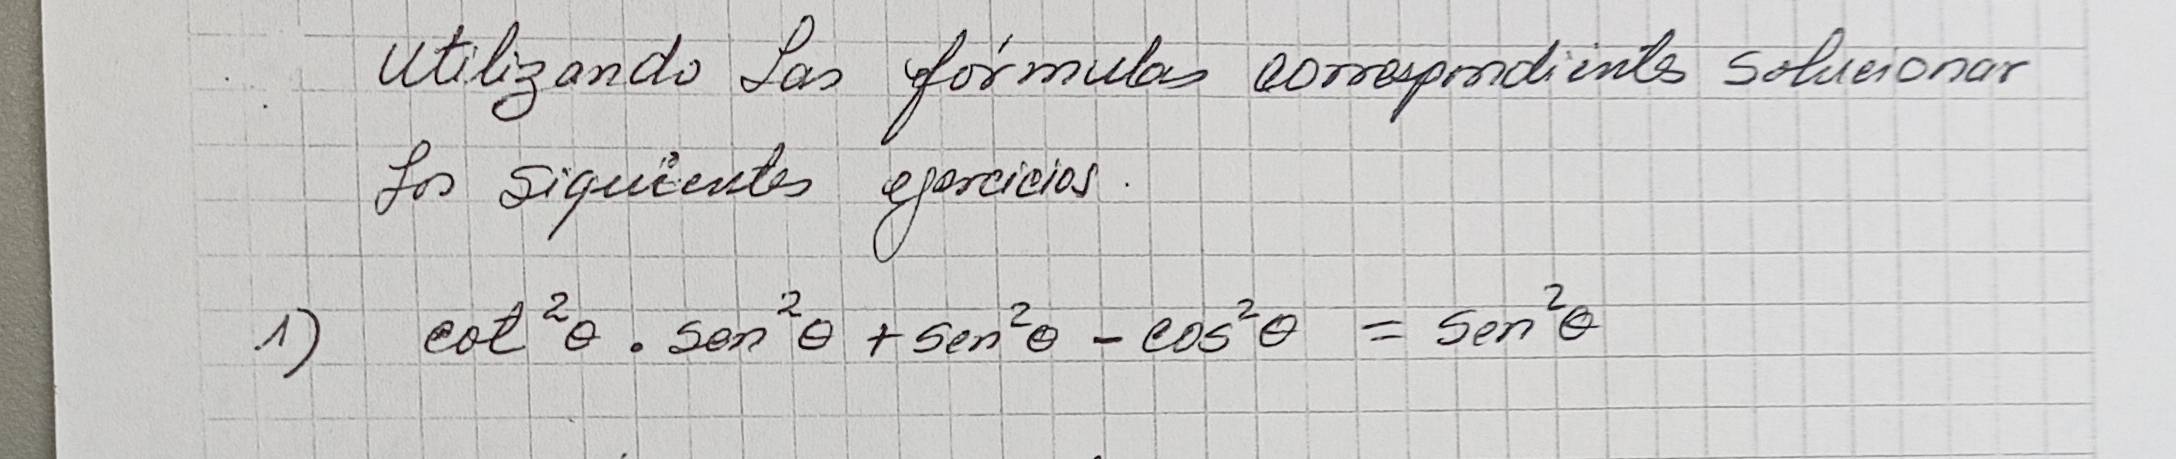 Utilizando las fórmulas correspondientes solucionar
los siguientes ejercicios.
1) cot²θ . sen²θ + sen²θ - cos²θ = sen²θ